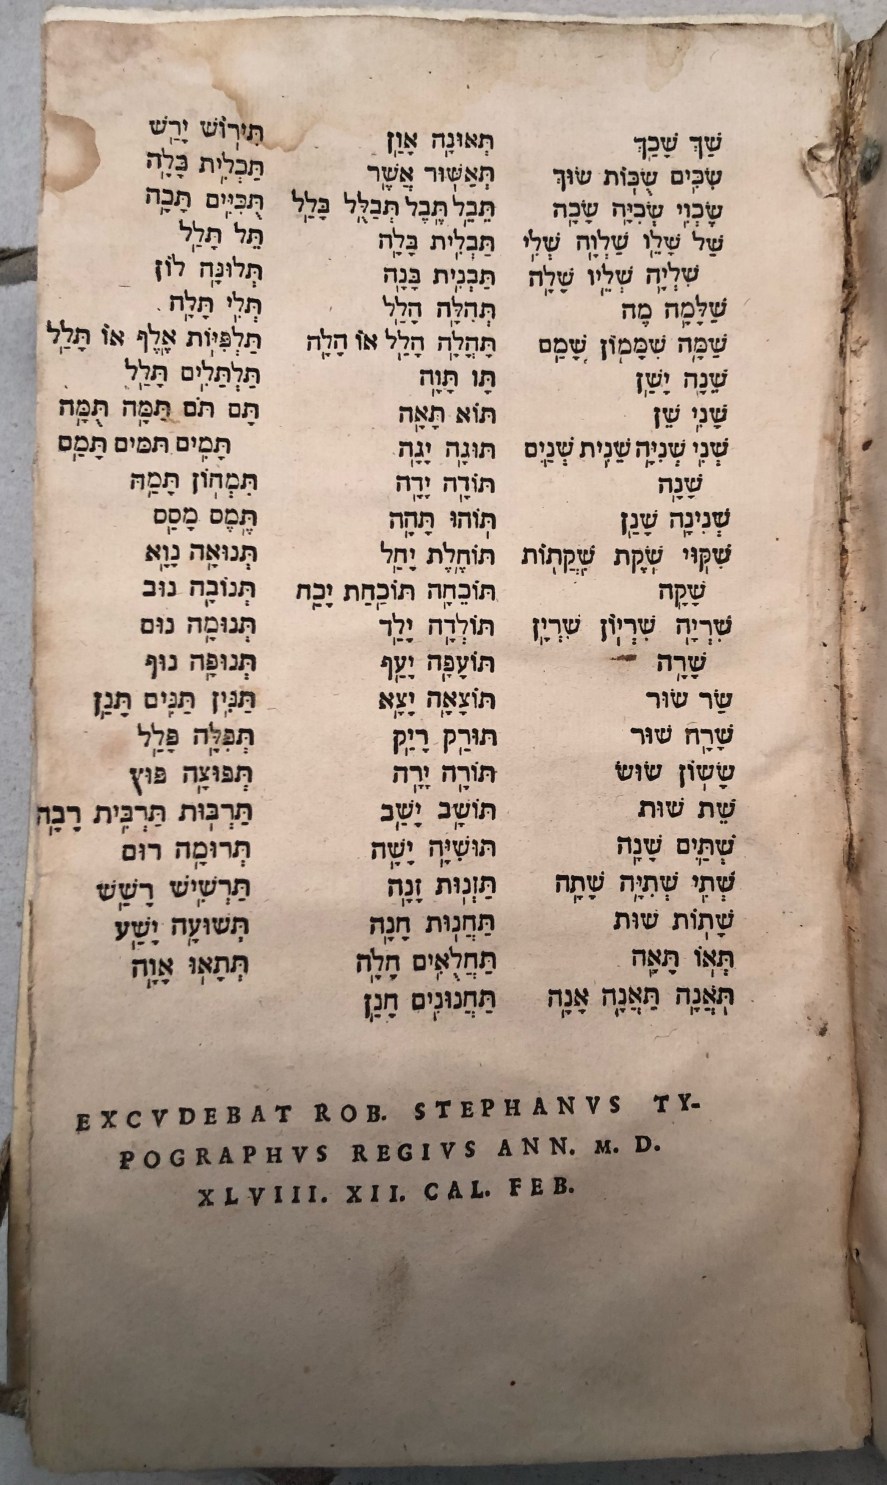 שַׁךְ שָׁכַךְ
שִׂכִּים שֻׂכּוֹת שׂוּךְ
שֶׂכְוִי שְׂכִיָּה שָׂכָה
שַׁל שָׁלֵו שַׁלְוָה שְׁלִי
שִׁלְיָה שְׁלֵיו שָׁלָה
שַׁלָּמָה מֶה
שַׁמָּה שִׁמָּמוֹן שָׁמַם
שֵׁנָה יָשַׁן
שָׁנִי שֵׁן
שְׁנִי שְׁנִיָּה שֵׁנִית שְׁנַיִם
שָׁנָה
שְׁנִינָה שָׁנַן
שִׁקּוּי שֹׁקֶת שִׁקֲתוֹת
שָׁקָה
שִׁרְיָה שִׁרְיוֹן שִׁרְיָן
שָׁרָה
שַׂר שׂוּר
שָׁרָח שׁוּר
שָׂשׂוֹן שׂוּשׂ
שֵׁת שׁוּת
שְׁתַּיִם שָׁנָה
שְׁתִי שְׁתִיָּה שָׁתָה
שָׁתוֹת שׁוּת
תְּאוֹ תָּאָה
תֹּאֲנָה תַּאֲנָה אָנָה
תְּאוּנָה אָוַן
תְּאַשּׁוּר אָשַׁר
תֵּבֵל תֶּבֶל תְּבַלֻּל בָּלַל
תַּבְלִית בָּלָה
תַּבְנִית בָּנָה
תְּהִלָּה הָלַל
תָּהֳלָה הָלַל אוֹ הָלָה
תָּו תָּוָה
תּוֹא תָּאָה
תּוּגָה יָגָה
תּוֹדָה יָדָה
תּוֹהוּ תָּהָה
תּוֹחֶלֶת יָחַל
תּוֹכֵחָה תּוֹכַחַת יָכַח
תּוֹלְדָה יָלַד
תּוֹעָפָה יָעַף
תּוֹצָאָה יָצָא
תּוּרַק רָיַק
תּוֹרָה יָרָה
תּוֹשָׁב יָשַׁב
תּוּשִׁיָּה יָשָׁה
תַּזְנוּת זָנָה
תַּחֲנוּת חָנָה
תַּחֲלֻאִים חָלָה
תַּחֲנוּנִים חָנַן
תִּירוֹשׁ יָרַשׁ
תַּכְלִית כָּלָה
תֻּכִּיִּים תָּכָה
תֵּל תָּלַל
תְּלוּנָּה לוּן
תְּלִי תָּלָה
תַּלְפִּיּוֹת אָלַף אוֹ תָּלַל
תַּלְתַּלִּים תָּלַל
תָּם תֹּם תַּמָּה תֻּמָּה
תָּמִים תמּים תָּמַם
תִּמְהוֹן תָּמַהּ
תֶּמֶס מָסַס
תְּנוּאָה נָוָא
תְּנוּבָה נוּב
תְּנוּמָה נוּם
תְּנוּפָה נוּף
תַּנִּין תַּנִּים תָּנַן
תְּפִלָּה פָּלַל
תְּפוּצָה פּוּץ
תַּרְבּוּת תַּרְבִּית רָבָה
תְּרוּמָה רוּם
תַּרְשִׁישׁ רָשַׁשׁ
תְּשׁוּעָה יָשַׁע
תְּתָאוּ אָוָה
EXCVDEBAT ROB. STEPHANVS TY-
POGRAPHVS REGIVS ANN. M. D.
XLVIII. XII. CAL. FEB.